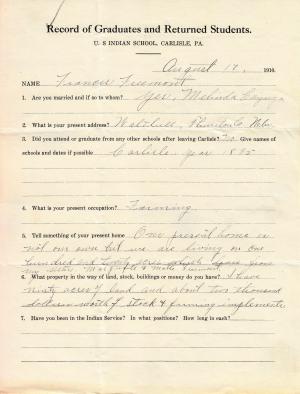 Record of Graduates and Returned Students.
U. S INDIAN SCHOOL, CARLISLE, PA.
August 17, 1910.
NAME Francis Freemont
1. Are you married and if so to whom? Yes, Melinda Cayuga
2. What is your present address? Walthill, Thurston Co. Nebr.
3. Did you attend or graduate from any other schools after leaving Carlisle? No Give names of
schools and dates if possible Carlisle year 1895
4. What is your present occupation? Farming
5. Tell something of your present home Our present home is
not our own but we are living on one
hundred and twenty acres
my sister Marguerite & Freemont
6. What property in the way of land, stock, buildings or money do you have? I have
ninty acres of land and about two thousand
dollars worth of stock & farming implements.
7. Have you been in the Indian Service? In what positions? How long is each?